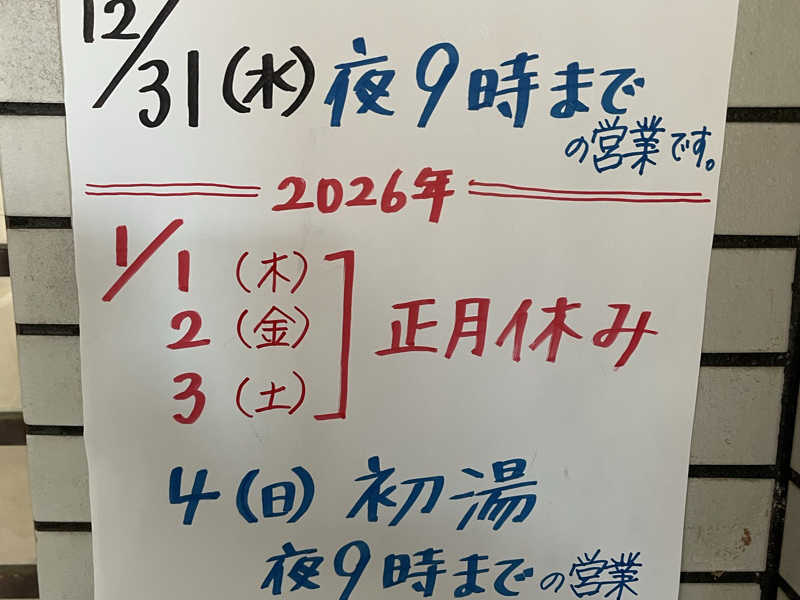 12/31(水)夜9時まで
の営業です。
2026年
1/1(木)
2(金)
正月休み
3(土)
4(日)初湯
夜9時までの営業